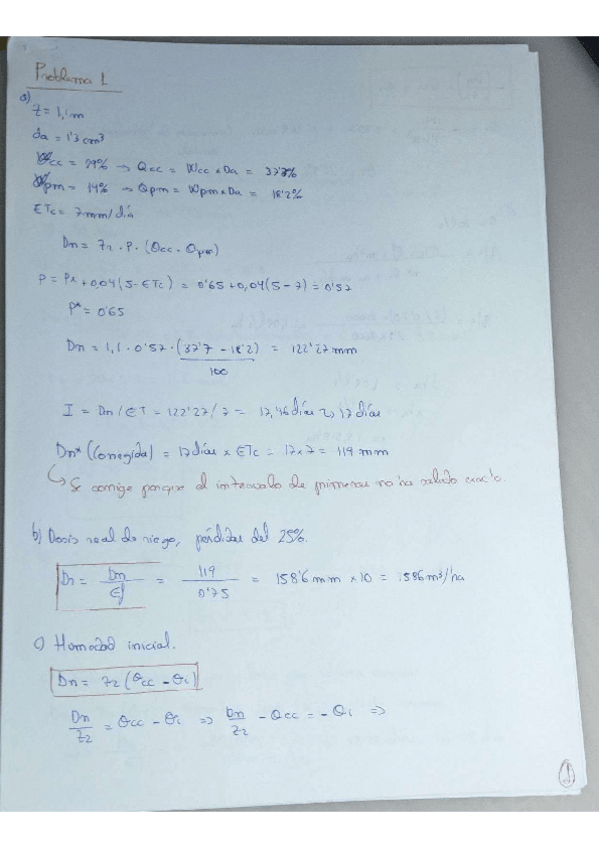 Problema 1
a)
Z = 1,1m
da = 1'3 cm3
Wcc = 29% → Θcc = Wcc x Da = 37'7%
Wpm = 14% → Θpm = Wpm x Da = 18'2%
ETc = 7 mm/día
Dn = Zr · P · (Θcc - Θpm)
P = P* + 0,04 (5 - ETc) = 0'65 + 0,04 (5 - 7) = 0'57
P* = 0'65
Dn = 1,1 · 0'57 · (37'7 - 18'2) / 100 = 122'27 mm
I = Dn / ET = 122'27 / 7 = 17,46 días ≈ 17 días
Dn* (Corregida) = 17 días x ETc = 17x7 = 119 mm
↳ Se corrige porque el intervalo de primeras no ha salido exacto.
b) Dosis real de riego, pérdidas del 25%.
Dr = Dn / Ef = 119 / 0'75 = 158'6 mm x 10 = 1586 m³/ha
c) Humedad inicial.
Dn = Zr (Θcc - Θi)
Dn / Zr = Θcc - Θi ⇒ Dn / Zr - Θcc = - Θi ⇒
1